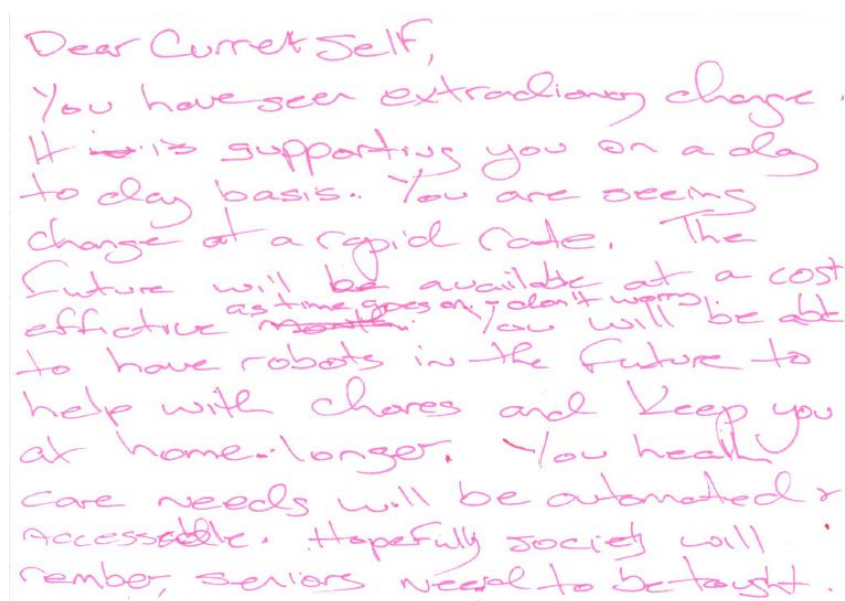 Dear Curret Self,
You have seen extradionary change.
It is supporting you on a day
to day basis. You are seeing
change at a rapid rate. The
Future will be available at a cost
as time goes on, don't worry.
effictive You will be able
to have robots in the future to
help with chores and keep you
at home longer. You health
care needs will be automated &
Accessable. Hopefully society will
rember, seniors need to be taught.